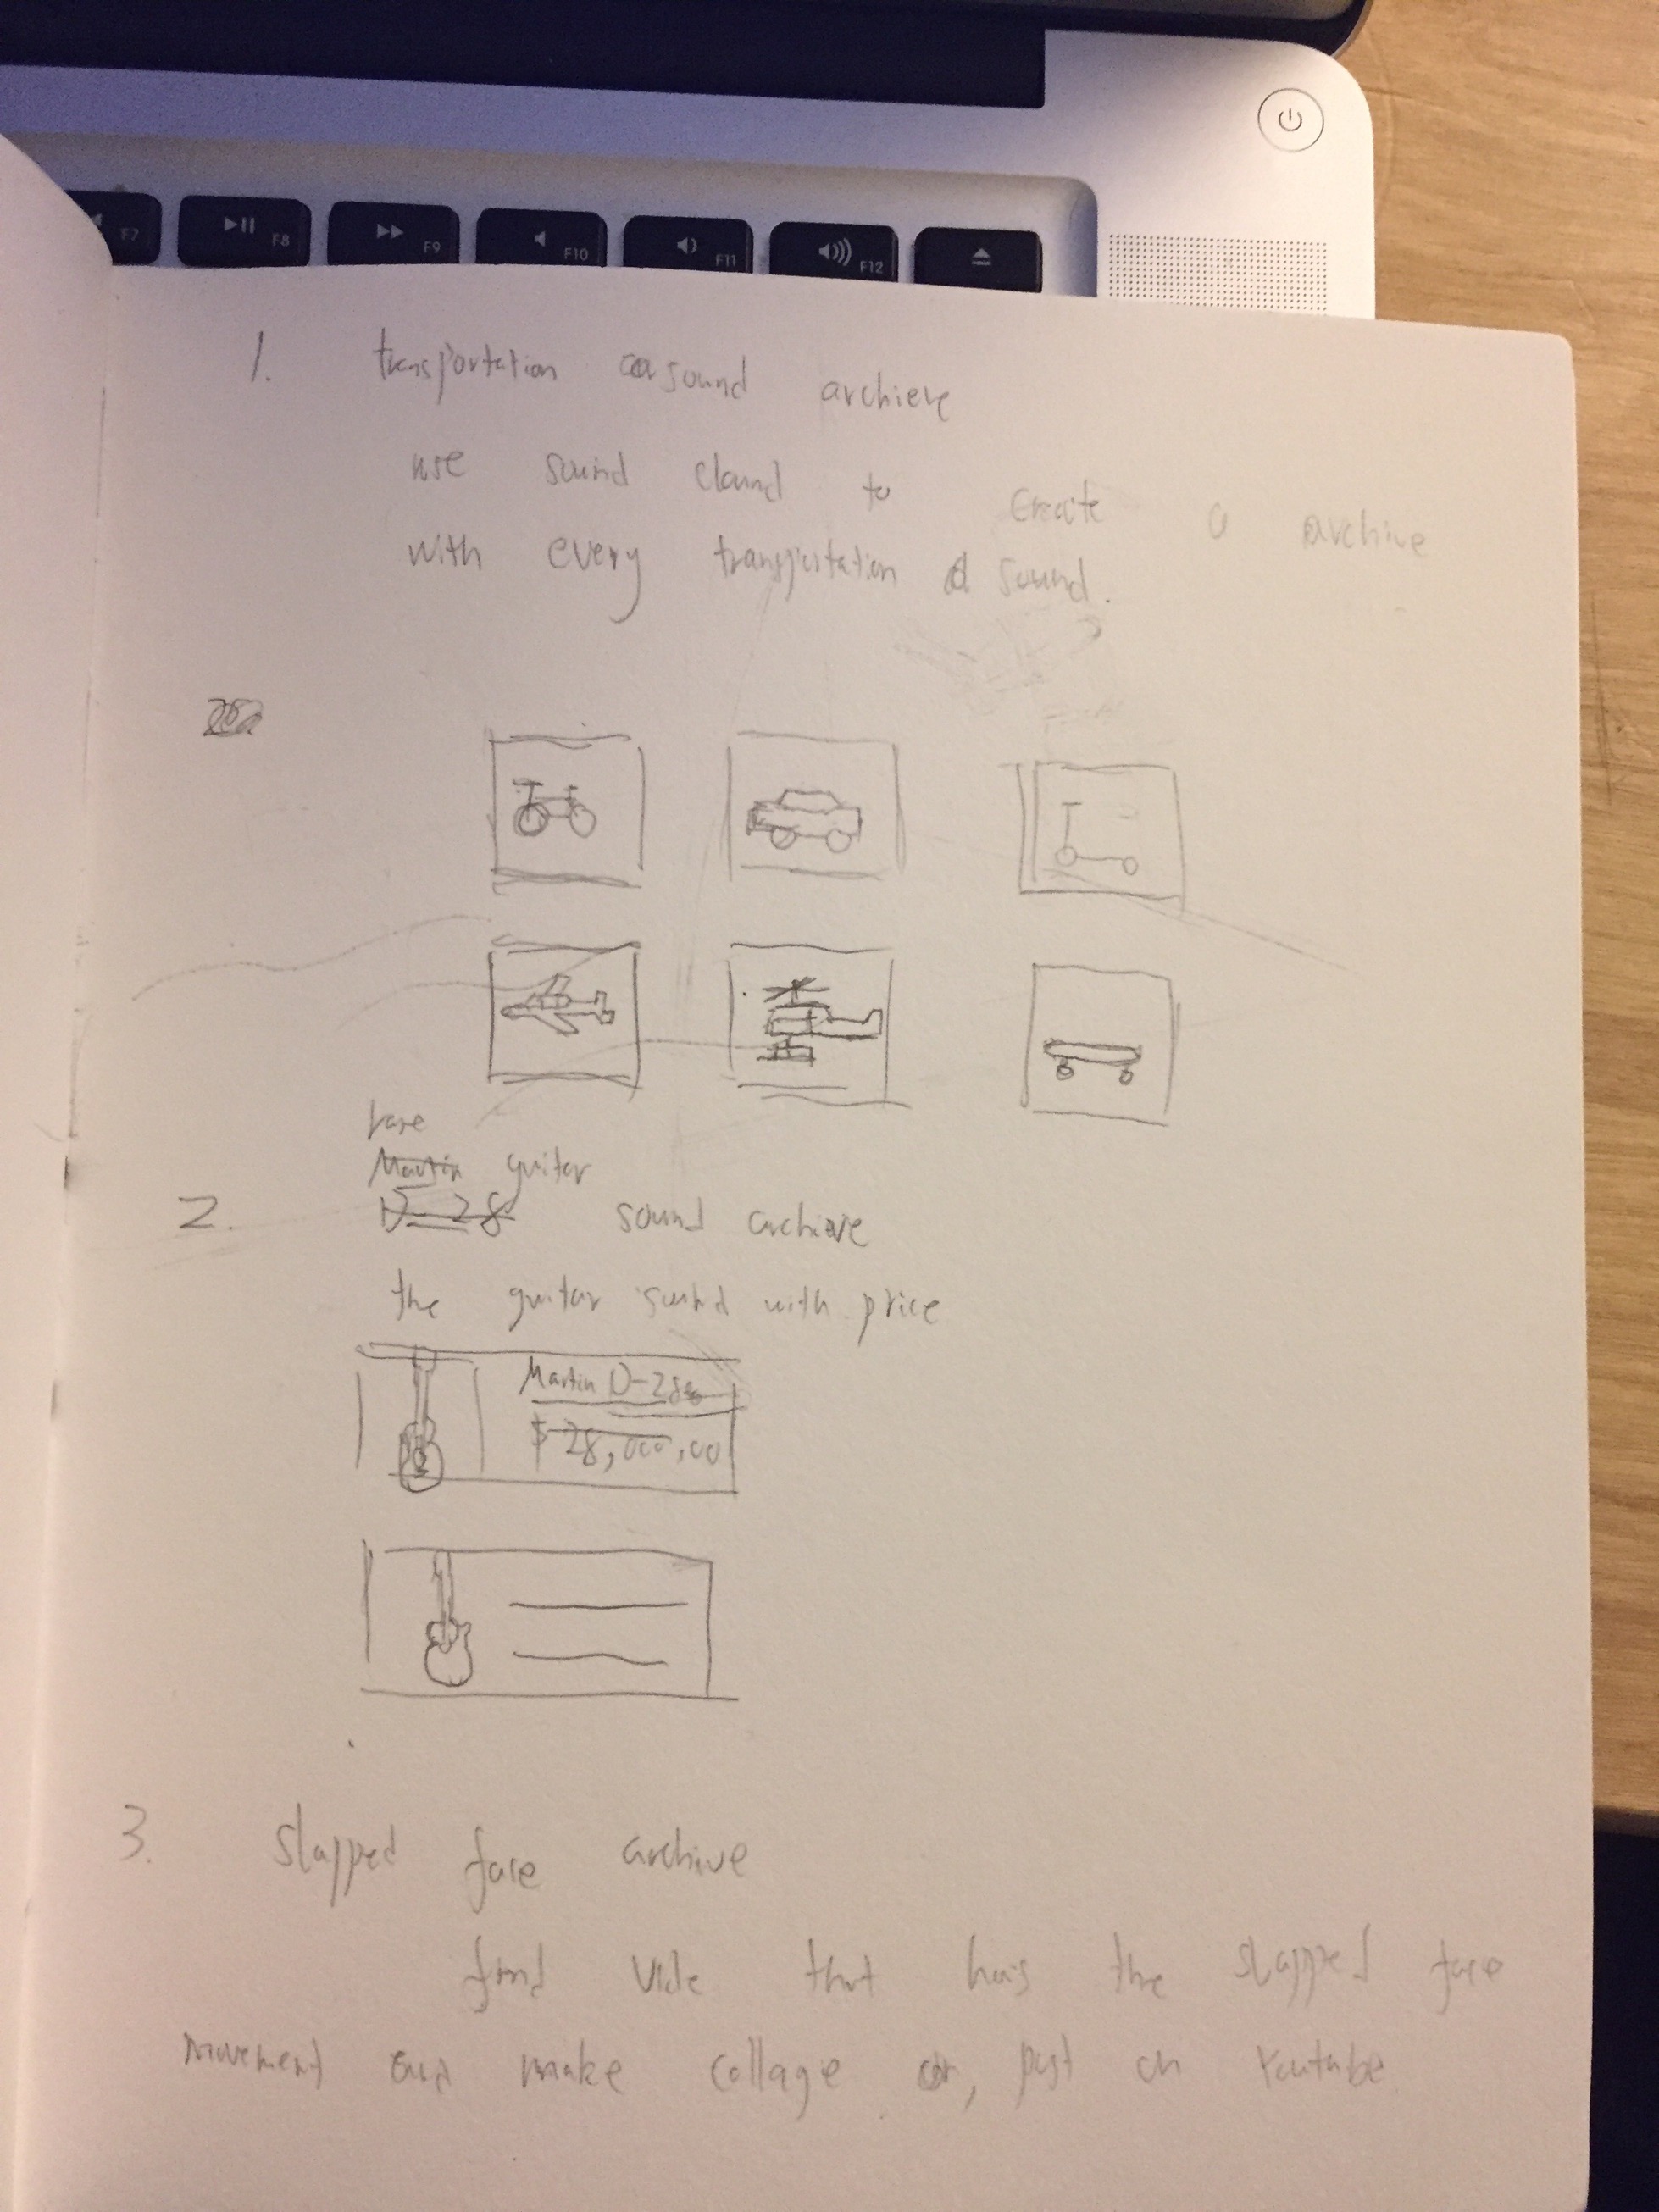 F7 F8 F9 F10 F11 F12
1. transportation sound archieve
use sound cloud to create a archive
with every transportation sound.
rare
Martin guitar
2. D-28 sound archive
the guitar sound with price
Martin D-28
$28,000,00
3. slapped face archive
find vide that has the slapped face
movement and make collage or, post on Youtube